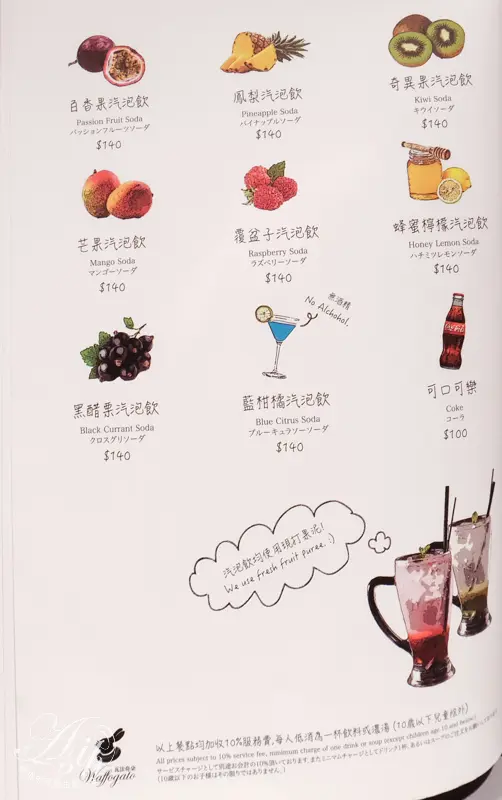 百香果汽泡飲
Passion Fruit Soda
パッションフルーツソーダ
$140
鳳梨汽泡飲
Pineapple Soda
パイナップルソーダ
$140
奇異果汽泡飲
Kiwi Soda
キウイソーダ
$140
芒果汽泡飲
Mango Soda
マンゴーソーダ
$140
覆盆子汽泡飲
Raspberry Soda
ラズベリーソーダ
$140
蜂蜜檸檬汽泡飲
Honey Lemon Soda
ハチミツレモンソーダ
$140
黑醋栗汽泡飲
Black Currant Soda
クロスグリソーダ
$140
無酒精
No Alchohol.
藍柑橘汽泡飲
Blue Citrus Soda
ブルーキュラソーソーダ
$140
可口可樂
Coke
コーラ
$100
汽泡飲均使用現打果泥!
We use fresh fruit puree. :)
以上餐點均加收10%服務費,每人低消為一杯飲料或濃湯 (10歲以下兒童除外)
All prices subject to 10% service fee, minimum charge of one drink or soup (except children age 10 and below)
サービスチャージとして別途お会計の10%頂いております。またミニマムチャージとしてドリンク1杯、あるいはスープのご注文をお願い
(10歳以下のお子様はその限りではありません。)
Waffogato